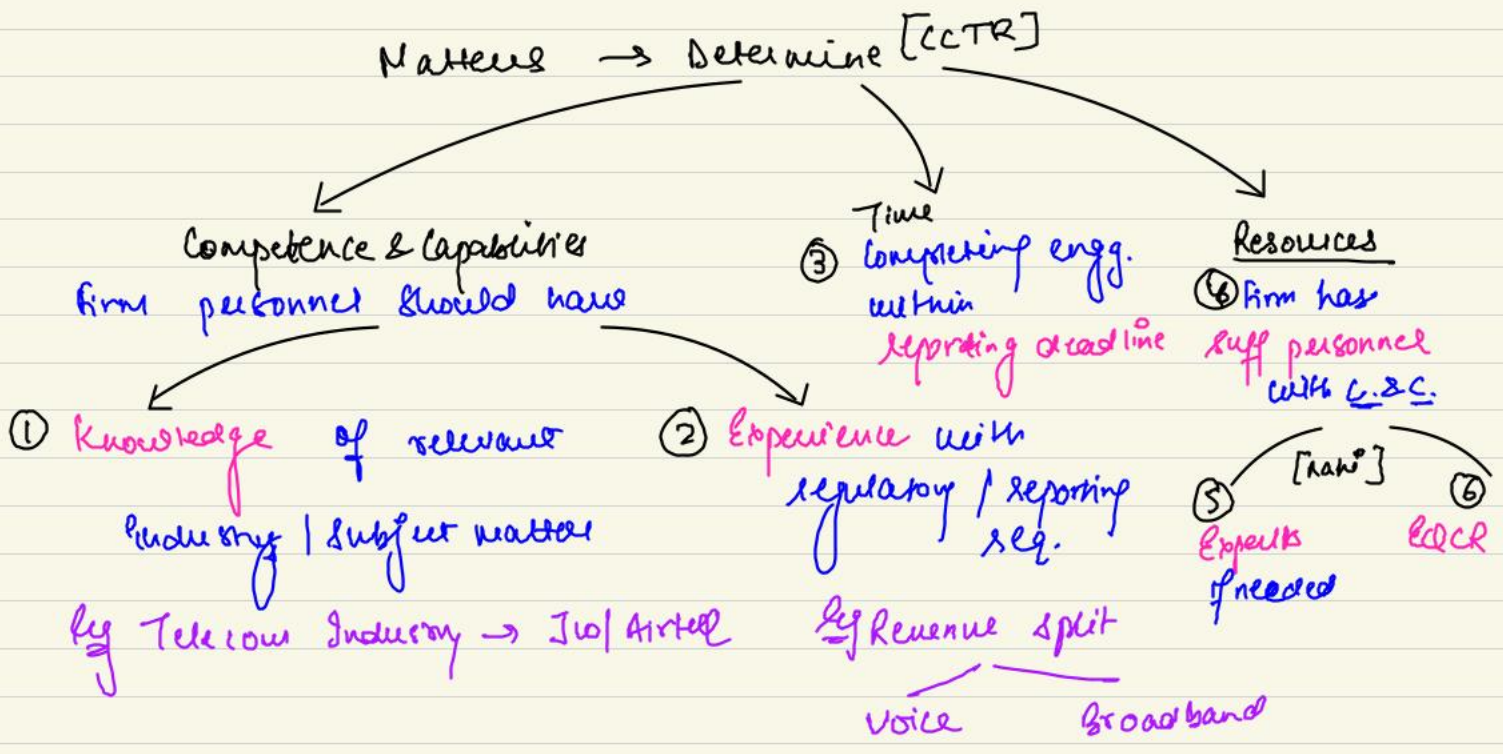 Matters → Determine [CCTR]
Competence & Capabilities
firm personnel should have
① Knowledge of relevant
industry / subject matter
Eg Telecom Industry → Jio/ Airtel
② Experience with
regulatory / reporting
req.
Eg Revenue split
Voice
Broadband
Time
③ Completing engg.
within
reporting deadline
Resources
firm has
suff personnel
with C. & C.
⑤
Experts
if needed
⑥
EQCR